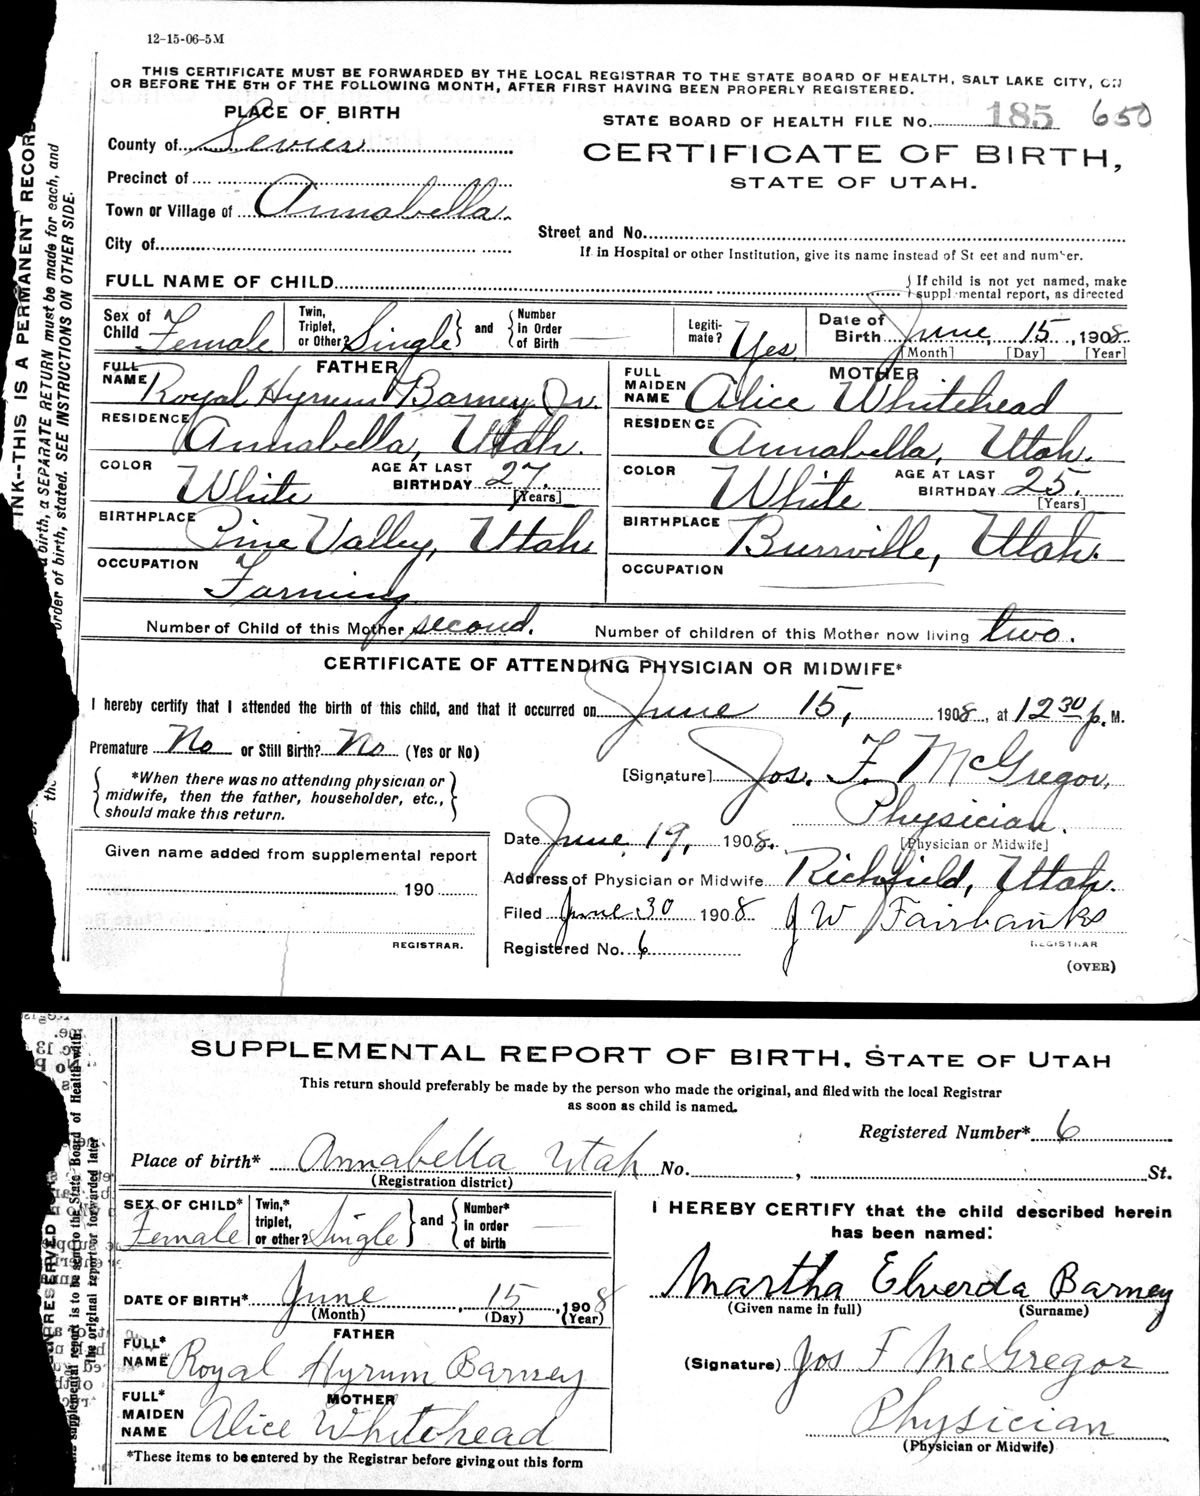 12-15-06-5M
THIS CERTIFICATE MUST BE FORWARDED BY THE LOCAL REGISTRAR TO THE STATE BOARD OF HEALTH, SALT LAKE CITY, ON
OR BEFORE THE 5TH OF THE FOLLOWING MONTH, AFTER FIRST HAVING BEEN PROPERLY REGISTERED.
PLACE OF BIRTH
STATE BOARD OF HEALTH FILE No. 185 650
County of Sevier
CERTIFICATE OF BIRTH,
STATE OF UTAH.
Precinct of
Town or Village of Annabella
City of
Street and No.
If in Hospital or other Institution, give its name instead of St eet and number.
FULL NAME OF CHILD
{If child is not yet named, make
suppl mental report, as directed
Sex of Child Female
Twin, Triplet, or Other? Single
and
Number in Order of Birth —
Legiti-mate? Yes
Date of Birth June 15, 1908
[Month] [Day] [Year]
FATHER
FULL NAME Royal Hyrum Barney Jr.
RESIDENCE Annabella, Utah.
COLOR White
AGE AT LAST BIRTHDAY 27.
[Years]
BIRTHPLACE Pine Valley, Utah
OCCUPATION Farming
MOTHER
FULL MAIDEN NAME Alice Whitehead
RESIDENCE Annabella, Utah.
COLOR White
AGE AT LAST BIRTHDAY 25.
[Years]
BIRTHPLACE Burrville, Utah.
OCCUPATION
Number of Child of this Mother second.
Number of children of this Mother now living two.
CERTIFICATE OF ATTENDING PHYSICIAN OR MIDWIFE*
I hereby certify that I attended the birth of this child, and that it occurred on June 15, 1908, at 12 30 p. M.
Premature No or Still Birth? No (Yes or No)
*When there was no attending physician or
midwife, then the father, householder, etc.,
should make this return.
[Signature] Jos. F. McGregor,
Physician.
[Physician or Midwife]
Date June 19, 1908.
Address of Physician or Midwife Richfield, Utah.
Filed June 30 1908 J W Fairbanks
REGISTRAR
Registered No. 6
(OVER)
Given name added from supplemental report
190
REGISTRAR.
INK--THIS IS A PERMANENT RECORD
a birth, a SEPARATE RETURN must be made for each, and
order of birth, stated. SEE INSTRUCTIONS ON OTHER SIDE.
SUPPLEMENTAL REPORT OF BIRTH, STATE OF UTAH
This return should preferably be made by the person who made the original, and filed with the local Registrar
as soon as child is named.
Registered Number* 6
Place of birth* Annabella Utah No. , St.
(Registration district)
SEX OF CHILD* Female
Twin,* triplet, or other? Single
and
Number* in order of birth —
DATE OF BIRTH* June, 15, 1908
(Month) (Day) (Year)
FATHER
FULL* NAME Royal Hyrum Barney
MOTHER
FULL* MAIDEN NAME Alice Whitehead
*These items to be entered by the Registrar before giving out this form
I HEREBY CERTIFY that the child described herein
has been named:
Martha Elverda Barney
(Given name in full) (Surname)
(Signature) Jos F McGregor
Physician
(Physician or Midwife)
supplemental report is to be sent to the State Board of Health with
the original report or forwarded later